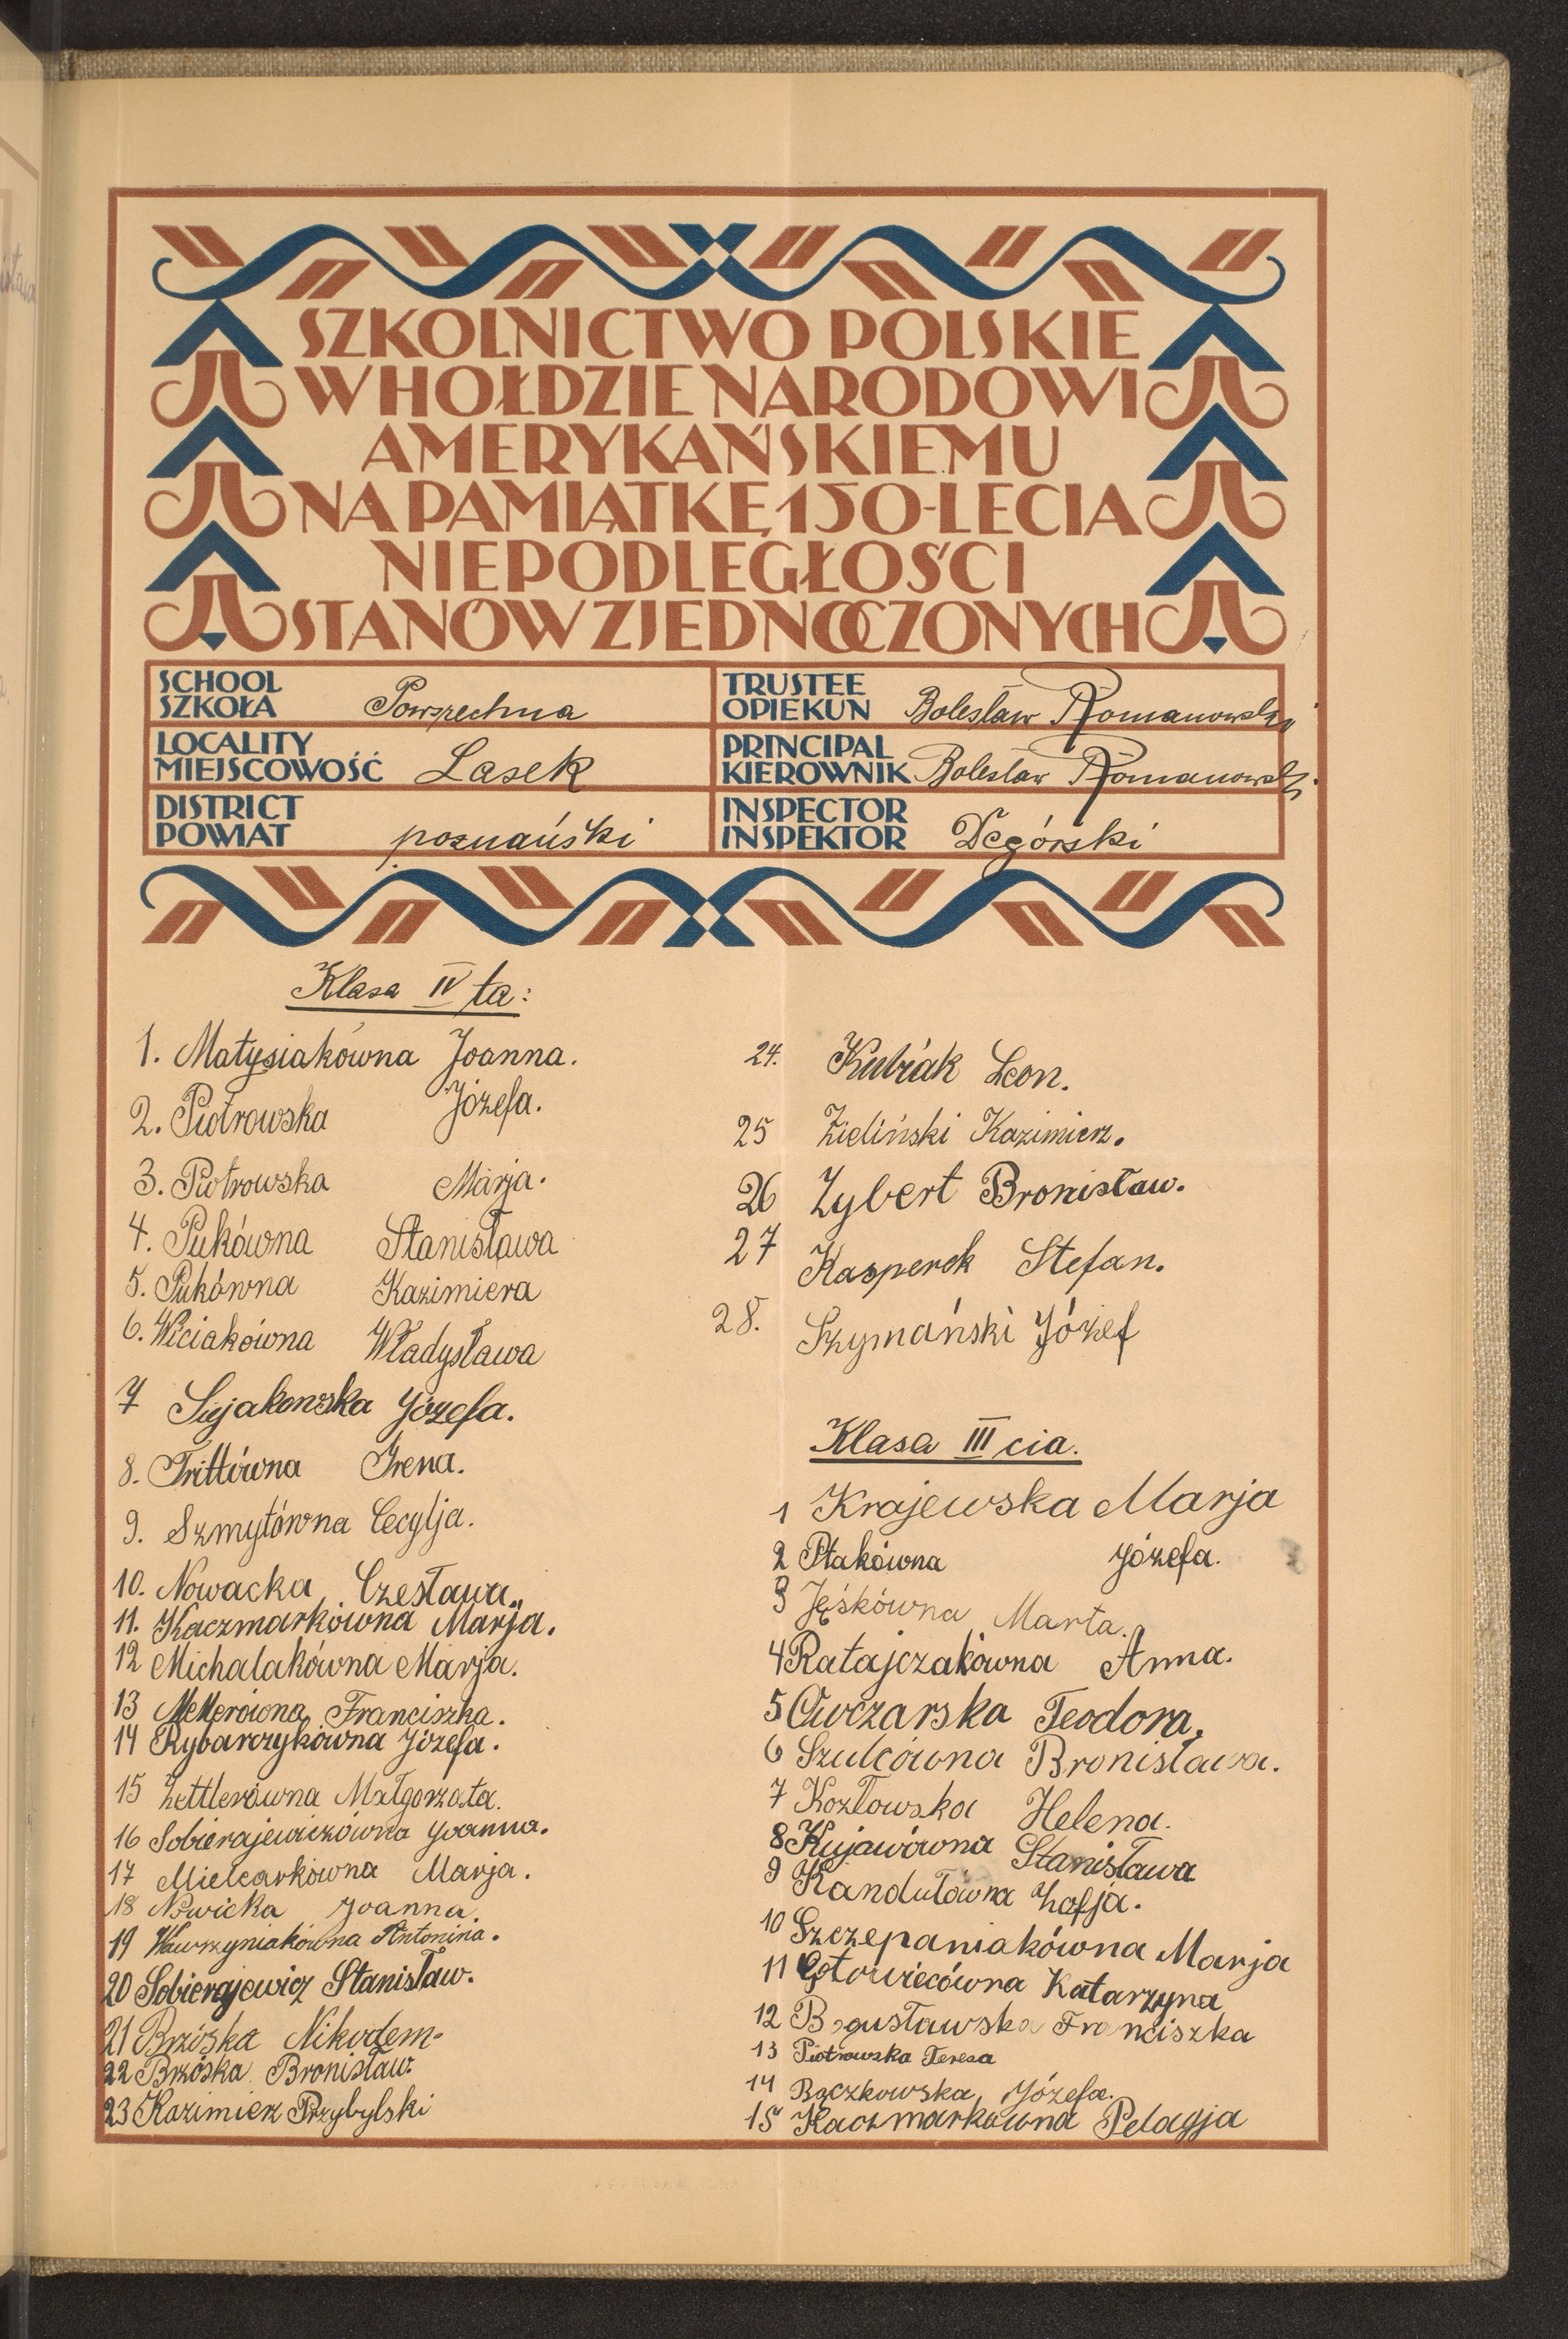 SZKOLNICTWO POLSKIE
W HOŁDZIE NARODOWI
AMERYKAŃSKIEMU
NA PAMIĄTKĘ 150-LECIA
NIEPODLEGŁOŚCI
STANÓW ZJEDNOCZONYCH
SCHOOL
SZKOŁA Powszechna
TRUSTEE
OPIEKUN Bolesław Romanowski
LOCALITY
MIEJSCOWOŚĆ Lasek
PRINCIPAL
KIEROWNIK Bolesław Romanowski
DISTRICT
POWIAT poznański
INSPECTOR
INSPEKTOR Degórski
Klasa IV ta:
1. Matysiakówna Joanna.
2. Piotrowska Józefa.
3. Piotrowska Marja.
4. Pukówna Stanisława
5. Pukówna Kazimiera
6. Wiciakówna Władysława
7 Sujakowska Józefa.
8. Trittówna Irena.
9. Szmytówna Cecylja.
10. Nowacka Czesława.
11. Kaczmarkówna Marja.
12 Michalakówna Marja.
13 Mellerówna Franciszka.
14 Rybarczykówna Józefa.
15 Zettlerówna Małgorzata.
16 Sobierajewiczówna Joanna.
17 Mielcarkówna Marja.
18 Nowicka Joanna.
19 Wawrzyniakówna Antonina.
20 Sobierajewicz Stanisław.
21 Brzóska Nikodem.
22 Brzóska Bronisław.
23 Kazimierz Przybylski
24. Kubiak Leon.
25 Zieliński Kazimierz.
26 Zybert Bronisław.
27 Kasperek Stefan.
28. Szymański Józef
Klasa III cia.
1 Krajewska Marja
2 Ptakówna Józefa.
3 Jęśkówna Marta.
4 Ratajczakówna Anna.
5 Owczarska Teodora.
6 Szulcówna Bronisława.
7 Kozłowska Helena.
8 Kujawówna Stanisława
9 Kandulówna Zofja.
10 Szczepaniakówna Marja
11 Gotowiecówna Katarzyna
12 Bogusławska Franciszka
13 Piotrowska Teresa
14 Bączkowska, Józefa.
15 Kaczmarkówna Pelagja